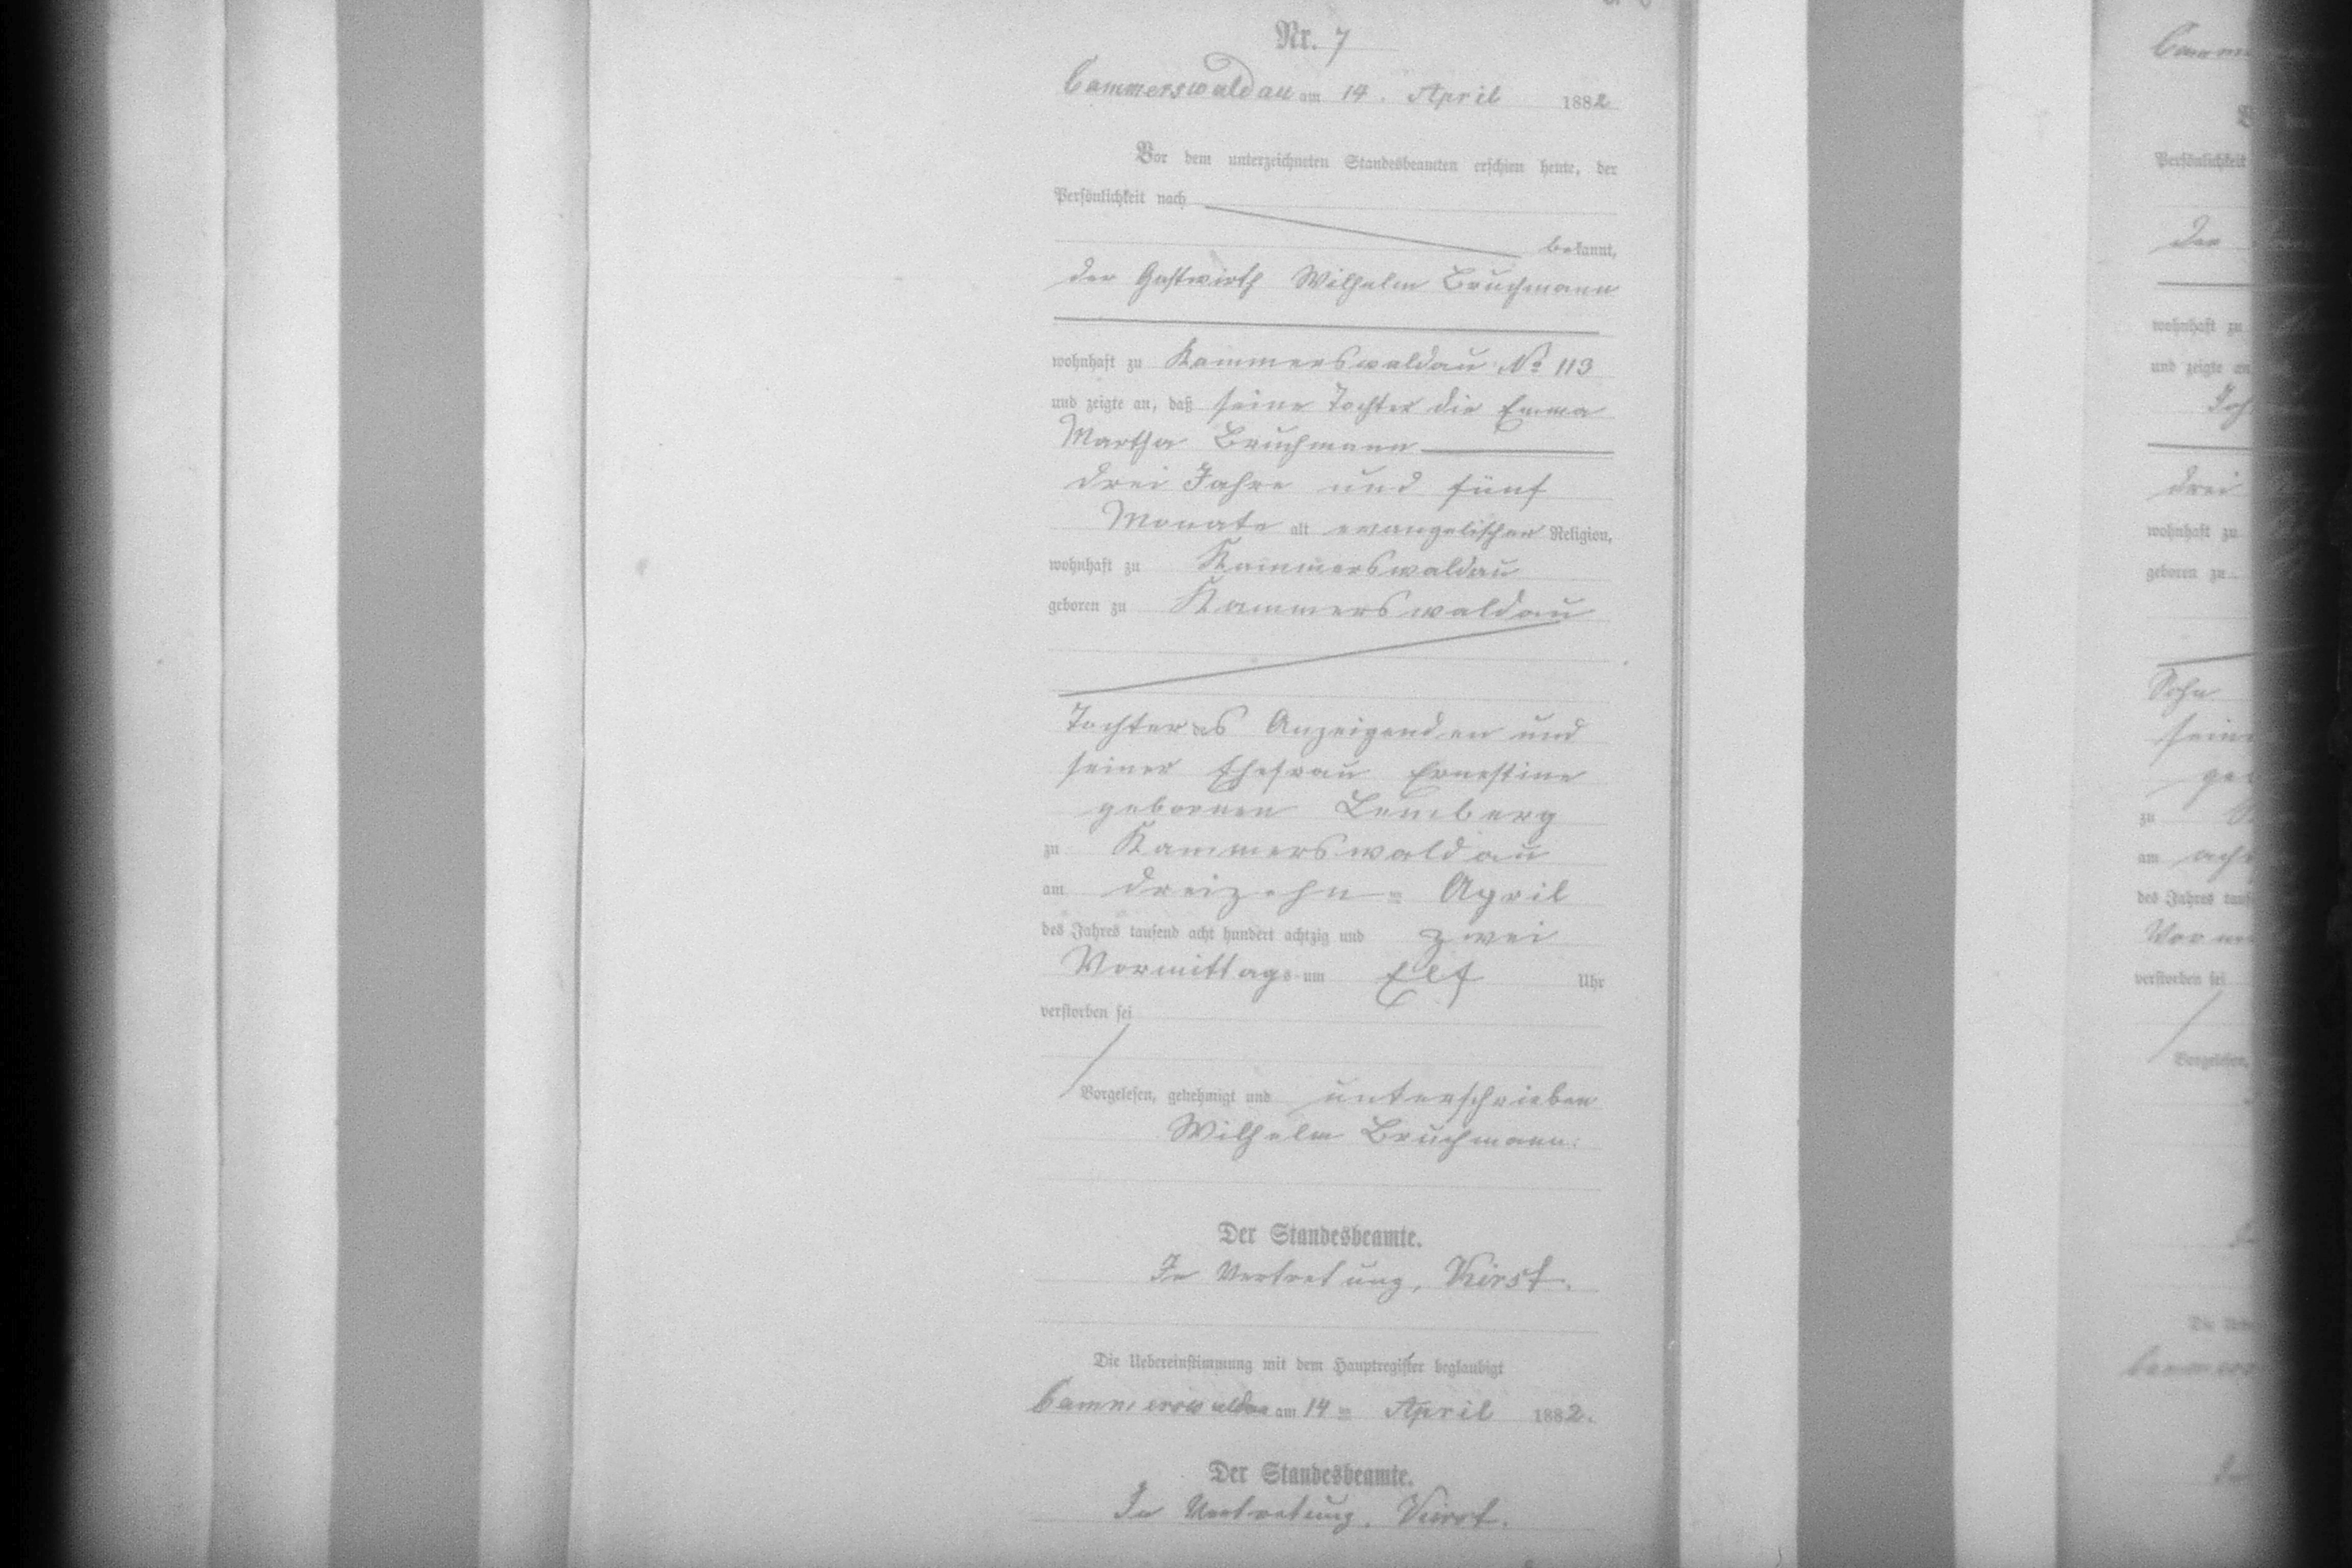 Nr. 7
Cammerswaldau am 14. April 1882
Vor dem unterzeichneten Standesbeamten erschien heute, der
Persönlichkeit nach
bekannt,
der Gastwirth Wilhelm Bruchmann
wohnhaft zu Kammerswaldau No 113
und zeigte an, daß seine Tochter die Emma
Martha Bruchmann
drei Jahre und fünf
Monate alt evangelischer Religion,
wohnhaft zu Kammerswaldau
geboren zu Kammerswaldau
Tochter des Anzeigenden und
seiner Ehefrau Ernestine
gebornen Lemberg
zu Kammerswaldau
am dreizehn= April
des Jahres tausend acht hundert achtzig und zwei
Vormittags um Elf Uhr
verstorben sei
Vorgelesen, genehmigt und unterschrieben
Wilhelm Bruchmann.
Der Standesbeamte.
In Vertretung, Kirst.
Die Uebereinstimmung mit dem Hauptregister beglaubigt
Cammerswaldau am 14= April 1882.
Der Standesbeamte.
In Vertretung. Kirst.
Persönlichkeit
der
wohnhaft zu
und zeigte an
drei
wohnhaft zu
geboren zu
Sohn
zu
am
des Jahres
verstorben sei